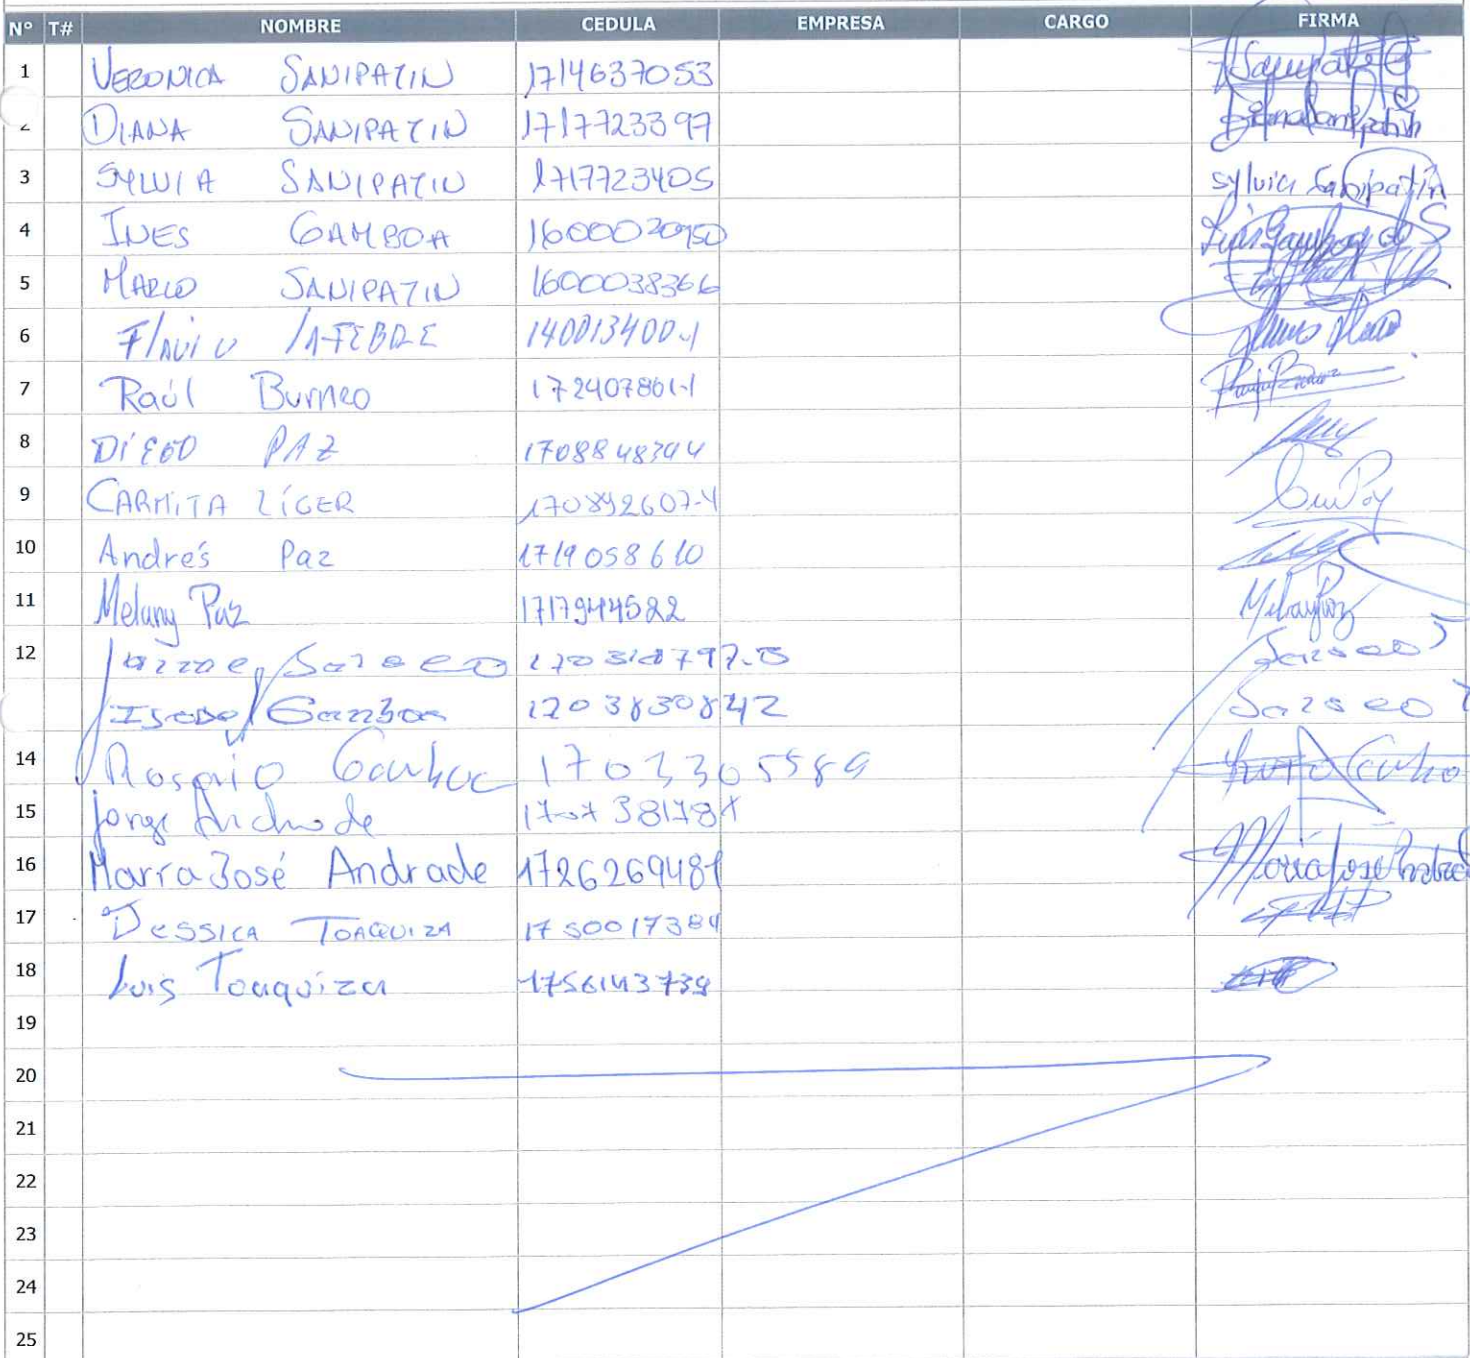 Nº T# NOMBRE CEDULA EMPRESA CARGO FIRMA
1 VERONICA SANIPATIN 1714637053
2 DIANA SANIPATIN 1717723397
3 SYLVIA SANIPATIN 1717723405 sylvia Sanipatín
4 INES GAMBOA 1600020950
5 MARCO SANIPATIN 1600038366
6 Flavio 140013400-1
7 Raúl Burneo 172407861-1
8 DIEGO PAZ 1708848344
9 CARMITA LÍGER 170892607-4
10 Andrés Paz 1719058610
11 Melany Paz 1717944522
12
Isabel Gamboa 1703830842
14 Rosario Gamboa 1703305589
15 Jorge Andrade
16 María José Andrade 1726269481 María José Andrade
17 JESSICA TOAQUIZA 1750017384
18 Luis Toaquiza 1756143739
19
20
21
22
23
24
25